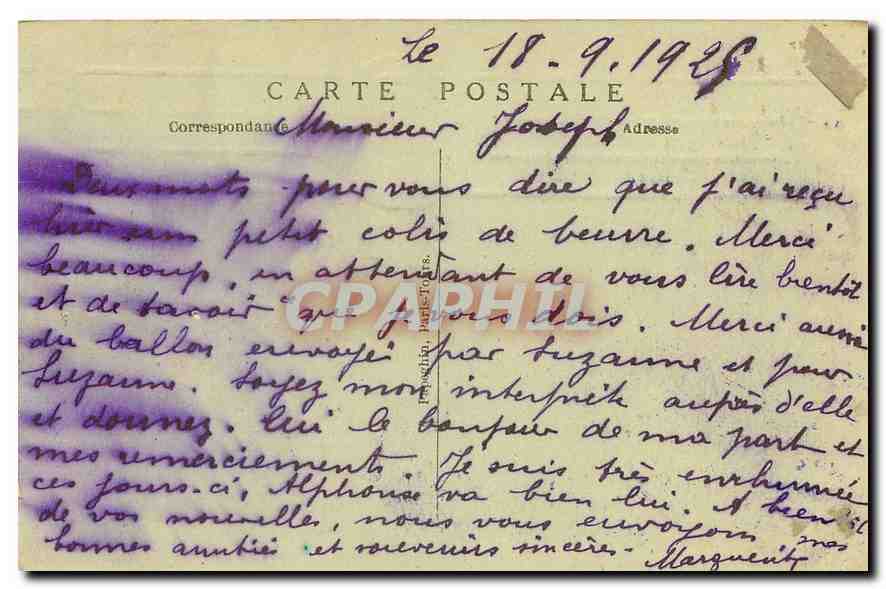 Le 18-9.1925
CARTE POSTALE
Correspondance Adresse
Monsieur Joseph
Deux mots pour vous dire que j'ai reçu
hier un petit colis de beurre. Merci
beaucoup, en attendant de vous lire bientôt
et de savoir que je vous dois. Merci aussi
du ballon envoyé par Suzanne et pour
Suzanne. Soyez mon interprète auprès d'elle
et donnez-lui le bonjour de ma part et
mes remerciements. Je suis très enrhumée
ces jours-ci, Alphonse va bien lui. A bientôt
de vos nouvelles, nous vous envoyons nos
bonnes amitiés et souvenirs sincères.
Marguerite
Papeghin, Paris-Tours.
CPAPHIL